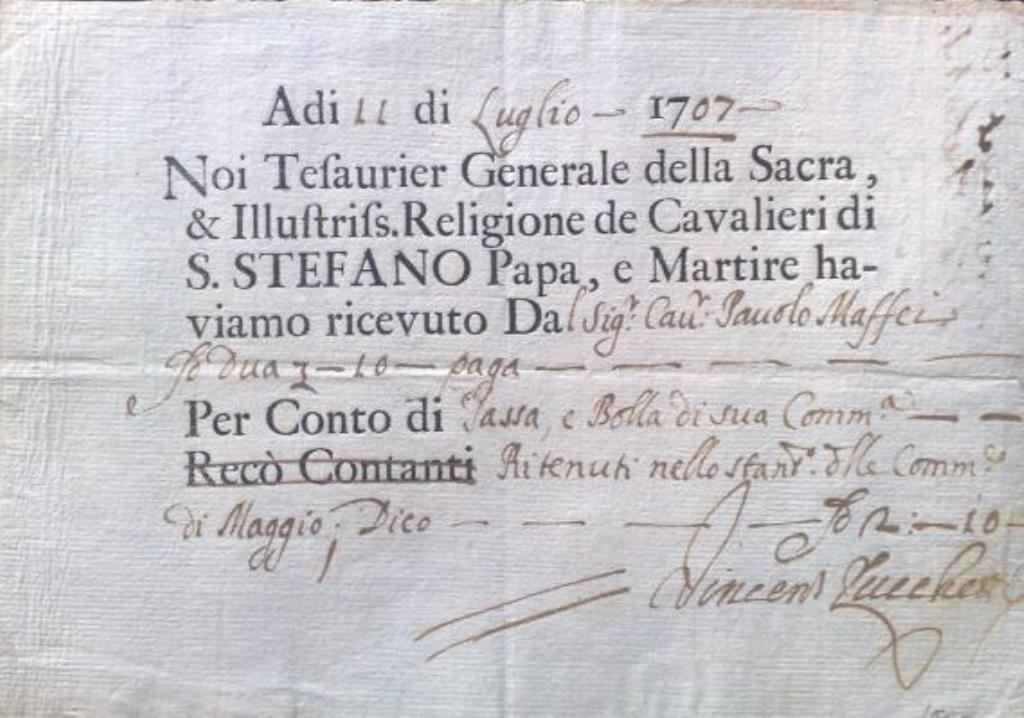 Adi 11 di Luglio — 1707 —
Noi Teſaurier Generale della Sacra,
& Illuſtriſs. Religione de Cavalieri di
S. STEFANO Papa, e Martire ha-
viamo ricevuto Dal Sigr. Caur. Pauolo Maffei
dua — 10 — paga — — — — —
Per Conto di Tassa, e Bolla di sua Comma — —
Recò Contanti Ritenuti nello stanto. dlle Comme
di Maggio; Dico — — — — 2: — 10 —
Vincent